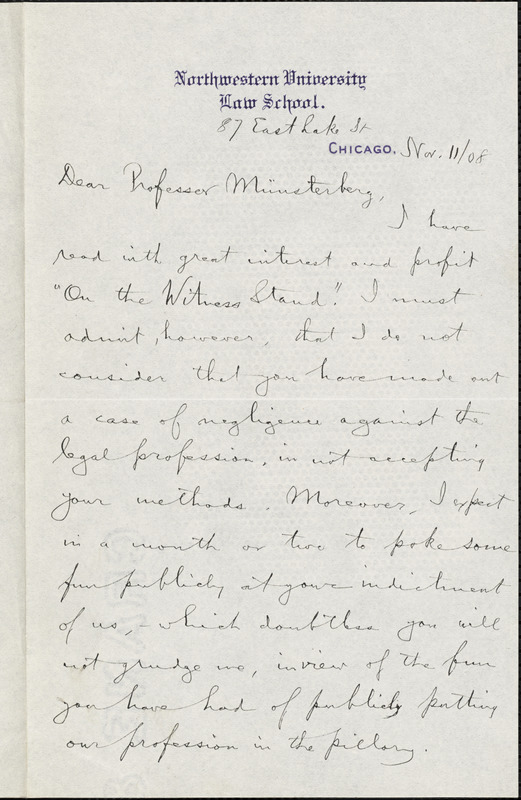 Northwestern University
Law School.
87 East Lake St
Chicago, Nov. 11/08
Dear Professor Münsterberg,
I have
read with great interest and profit
"On the Witness Stand". I must
admit, however, that I do not
consider that you have made out
a case of negligence against the
legal profession, in not accepting
your methods. Moreover, I expect
in a month or two to poke some
fun publicly at your indictment
of us, – which doubtless you will
not grudge me, in view of the fun
you have had of publicly putting
our profession in the pillory.